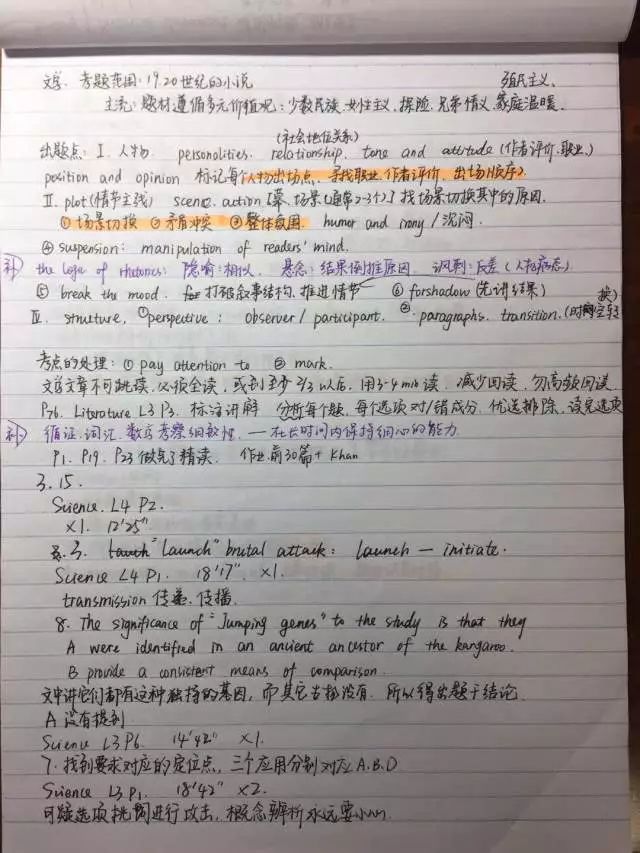 文学. 考题范围: 19.20世纪的小说 殖民主义.
主流: 题材遵循多元价值观: 少数民族. 女性主义. 探险. 兄弟情义. 家庭温暖.
(社会地位关系)
出题点: I. 人物 personalities. relationship. tone and attitude (作者评价.职业.)
position and opinion 标记每个人物出场点. 寻找职业.作者评价.出场顺序.)
II. plot (情节主线) scene. action [幕.场景(通常2-3个).] 找场景切换其中的原因.
①场景切换 ②矛盾冲突 ③整体氛围 humor and irony / 沉闷.
④ suspension: manipulation of readers' mind.
补) the logic of rhetorics: 隐喻:相似. 悬念:结果倒推原因. 讽刺:反差(人物病态)
⑤ break the mood. 打破叙事结构.推进情节 ⑥ forshadow (先讲结果)
III. structure. ① perspective: observer / participant. ② paragraphs. transition. (时间空转换)
考点的处理: ① pay attention to ② mark.
文学文章不可跳读.必须全读, 或到至少2/3以后. 用3-4 min 读. 减少回读. 勿高频回读.
P76. Literature L3 P3. 标注讲解 分析每个题. 每个选项对/错成分. 优选排除. 读完选项
补) 循证.词汇.数学考察细致性. — 在长时间内保持细心的能力.
P1. P19. P23 做完了精读. 作业 前30篇 + Khan
3.15.
Science. L4 P2.
×1. 12'25".
3. "Launch" brutal attack: launch — initiate.
Science L4 P1. 18'17". ×1.
transmission 传递.传播.
8. The significance of "Jumping genes" to the study is that they
A were identified in an ancient ancestor of the kangaroo.
B provide a consistent means of comparison.
文中讲它们都有这种独特的基因, 而其它古物没有. 所以得出题干结论.
A 没有提到.
Science L3 P6. 14'42" ×1.
7. 找到要求对应的定位点, 三个应用分别对应 A.B.D
Science L3 P1. 18'42" ×2.
可疑选项挑词进行攻击, 概念辨析永远要小心